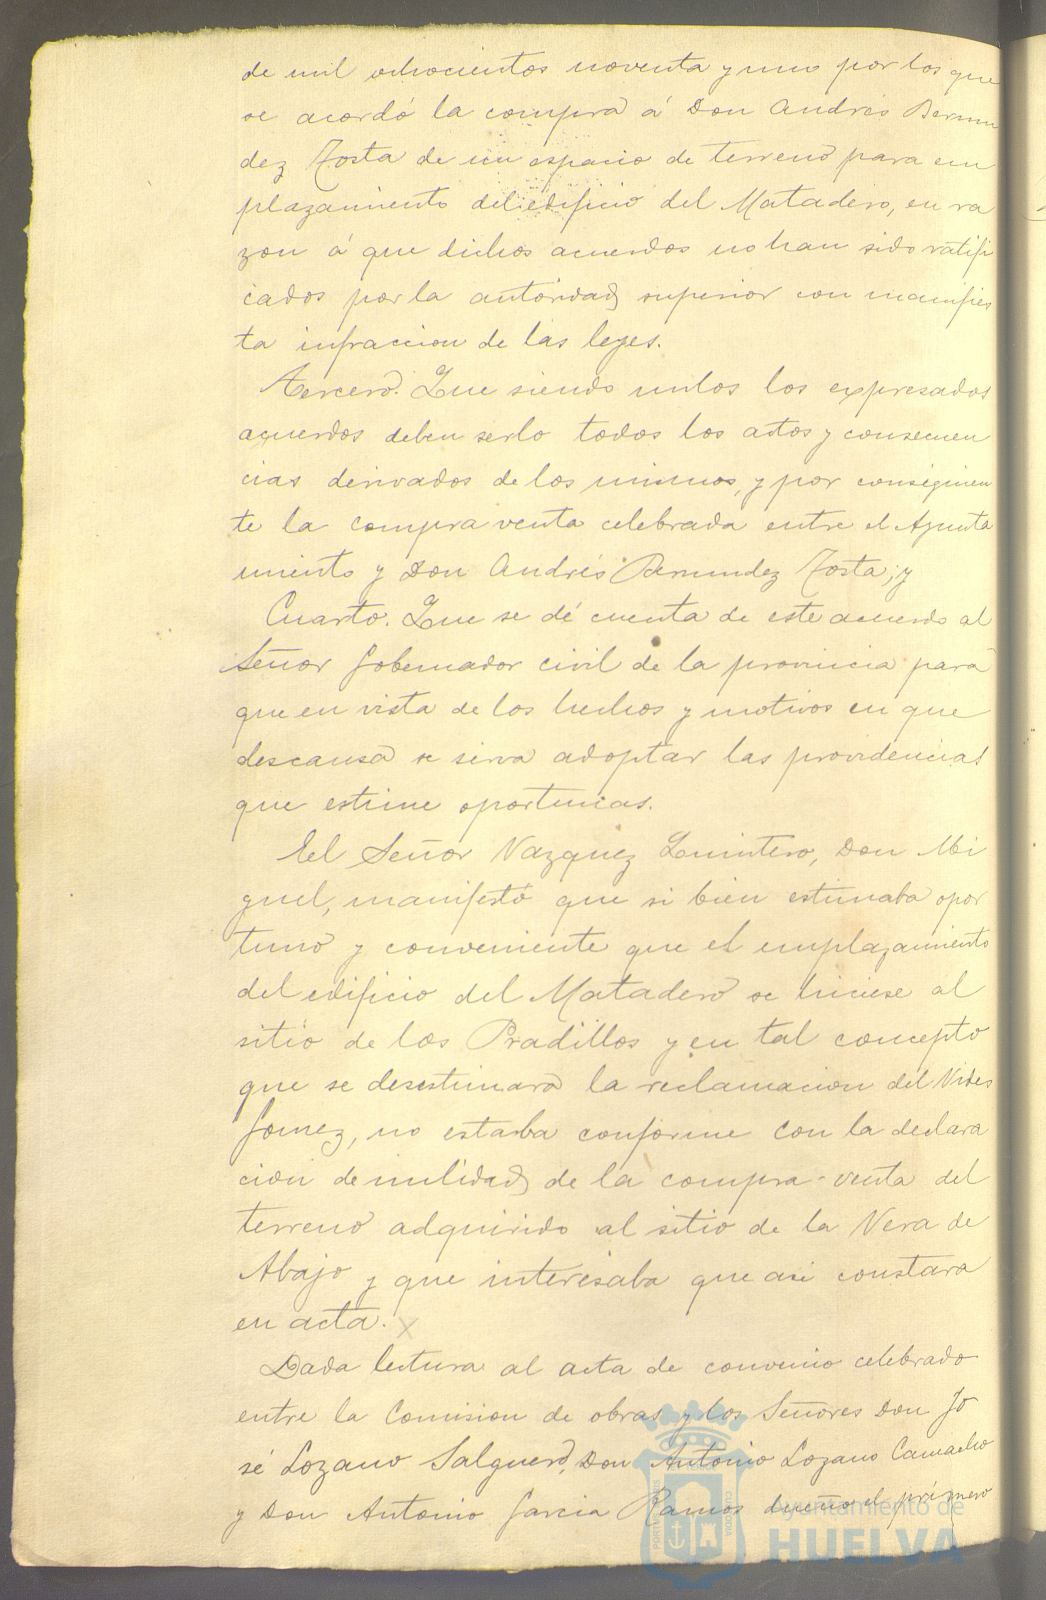 de mil ochocientos noventa y uno por los que
se acordó la compra á Don Andrés Bermu
dez Tosta de un espacio de terreno para em
plazamiento del edificio del Matadero, en ra
zon á que dichos acuerdos no han sido ratifi
cados por la autoridad superior con manifies
ta infraccion de las leyes.
Tercero. Que siendo nulos los expresados
acuerdos deben serlo todos los actos y consecuen
cias derivados de los mismos, y por consiguien
te la compra venta celebrada entre el Ayunta
miento y Don Andrés Bermudez Tosta; y
Cuarto. Que se dé cuenta de este acuerdo al
Señor Gobernador civil de la provincia para
que en vista de los hechos y motivos en que
descansa se sirva adoptar las providencias
que estime oportunas.
El Señor Vazquez Quintero, Don Mi
guel, manifestó que si bien estimaba opor
tuno y conveniente que el emplazamiento
del edificio del Matadero se hiciese al
sitio de los Pradillos y en tal concepto
que se desestimara la reclamacion del Vides
Gomez, no estaba conforme con la declara
cion de nulidad de la compra-venta del
terreno adquirido al sitio de la Vera de
Abajo y que interesaba que asi constara
en acta.
Dada lectura al acta de convenio celebrado
entre la Comision de obras y los Señores Don Jo
sé Lozano Salguero, Don Antonio Lozano Camacho
y Don Antonio Garcia Ramos dueño el primero
Ayuntamiento de
HUELVA